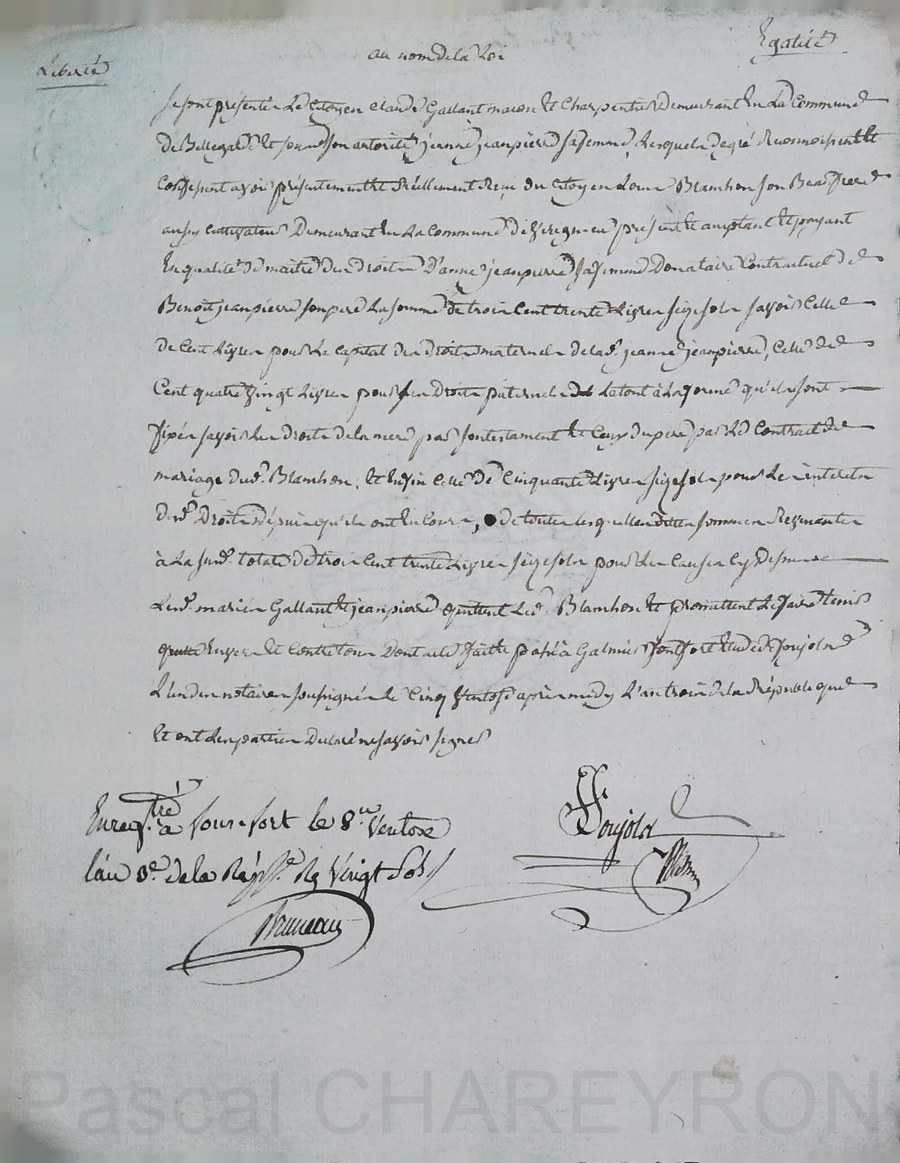 Liberté
au nom de la Loi
Egalité
Se sont présentés Le Citoyen claude Gallant mason Et Charpentier Demeurant En La Commune
de Bellegarde Et sous son autorité jeanne jeanpierre sa femme, Lesquels de gré Reconnoissent Et
Confessent avoir présentement Et Réellement Reçu du Citoyen Louis Blanchon son Beau frere
aussy Cultivateur Demeurant En La Commune présent Et acceptant Et payant
En qualité de maitre des Droits D'anne jeanpierre sa femme Donataire Contractuel de
Benoit jeanpierre son pere La somme de trois Cent trente Livres seize sols savoir Celle
de Cent Livres pour Le Capital des Droits maternels de la d. jeanne jeanpierre, Celle de
Cent quatre vingt Livres pour ses Droits paternels Le tout à La forme qu'ils sont
fixés savoir Les Droits de la mere par son testament Et Ceux du pere par Le Contract de
mariage dud. Blanchon, Et Enfin Celle de Cinquante Livres seize sols pour Les intérêts
desd. Droits depuis qu'ils ont En Cours, de toutes Lesquelles dittes sommes Revenantes
à La susd. totale de trois Cent trente Livres seize sols pour Les Causes Cy dessus
Lesd. mariés Gallant Et jeanpierre quittent Led. Blanchon Et promettent Le faire tenir
quitte Envers Et Contre tous Dont acte fait Et passé à Galmier fontfort Etude de Poujols
L'un des notaires soussignés Le Cinq Ventose après midy L'an trois de la République
Et ont Les parties Déclaré ne savoir signer
Poujols
Enregistré à fontfort le 8.e Ventose
l'an 3.e de la Rép. Rç Vingt Sols
Bruneau
Pascal CHAREYRON